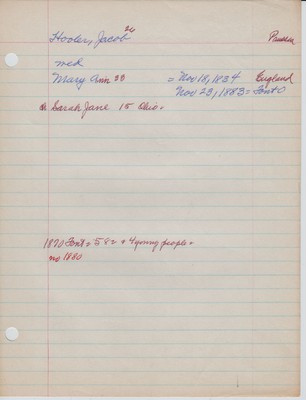 Hooler, Jacob 24
wed
Mary Ann 23 = Nov 18, 1834 England
Nov 23, 1883 = Font O
Sarah Jane 15 Ohio.
1870 Font = 5 & 2 + 4 young people =
no 1880